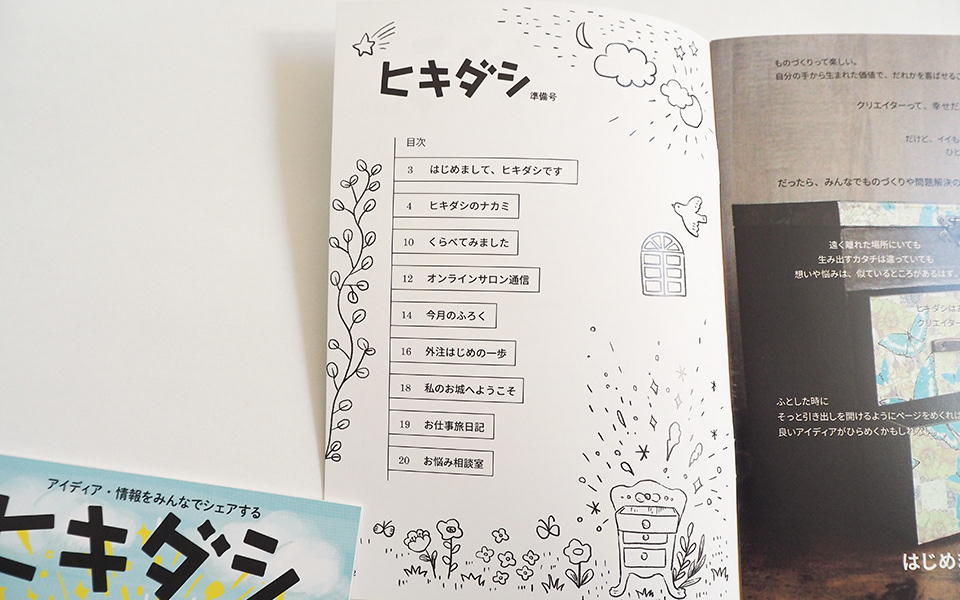 ヒキダシ 準備号
目次
3 はじめまして、ヒキダシです
4 ヒキダシのナカミ
10 くらべてみました
12 オンラインサロン通信
14 今月のふろく
16 外注はじめの一歩
18 私のお城へようこそ
19 お仕事旅日記
20 お悩み相談室
ものづくりって楽しい。
自分の手から生まれた価値で、だれかを喜ばせるこ
クリエイターって、幸せだ
だけど、イイも
ひと
だったら、みんなでものづくりや問題解決の
遠く離れた場所にいても
生み出すカタチは違っていても
想いや悩みは、似ているところがあるはず。
ヒキダシは
クリエイター
ふとした時に
そっと引き出しを開けるようにページをめくれば
良いアイディアがひらめくかもしれない
はじめま
アイディア・情報をみんなでシェアする
ヒキダシ